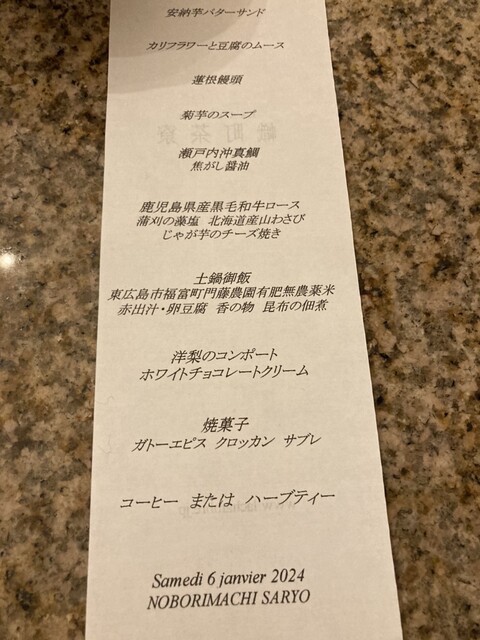 安納芋バターサンド
カリフラワーと豆腐のムース
蓮根饅頭
菊芋のスープ
瀬戸内沖真鯛
焦がし醤油
鹿児島県産黒毛和牛ロース
蒲刈の藻塩 北海道産山わさび
じゃが芋のチーズ焼き
土鍋御飯
東広島市福富町門藤農園有肥無農薬米
赤出汁・卵豆腐 香の物 昆布の佃煮
洋梨のコンポート
ホワイトチョコレートクリーム
焼菓子
ガトーエピス クロッカン サブレ
コーヒー または ハーブティー
Samedi 6 janvier 2024
NOBORIMACHI SARYO